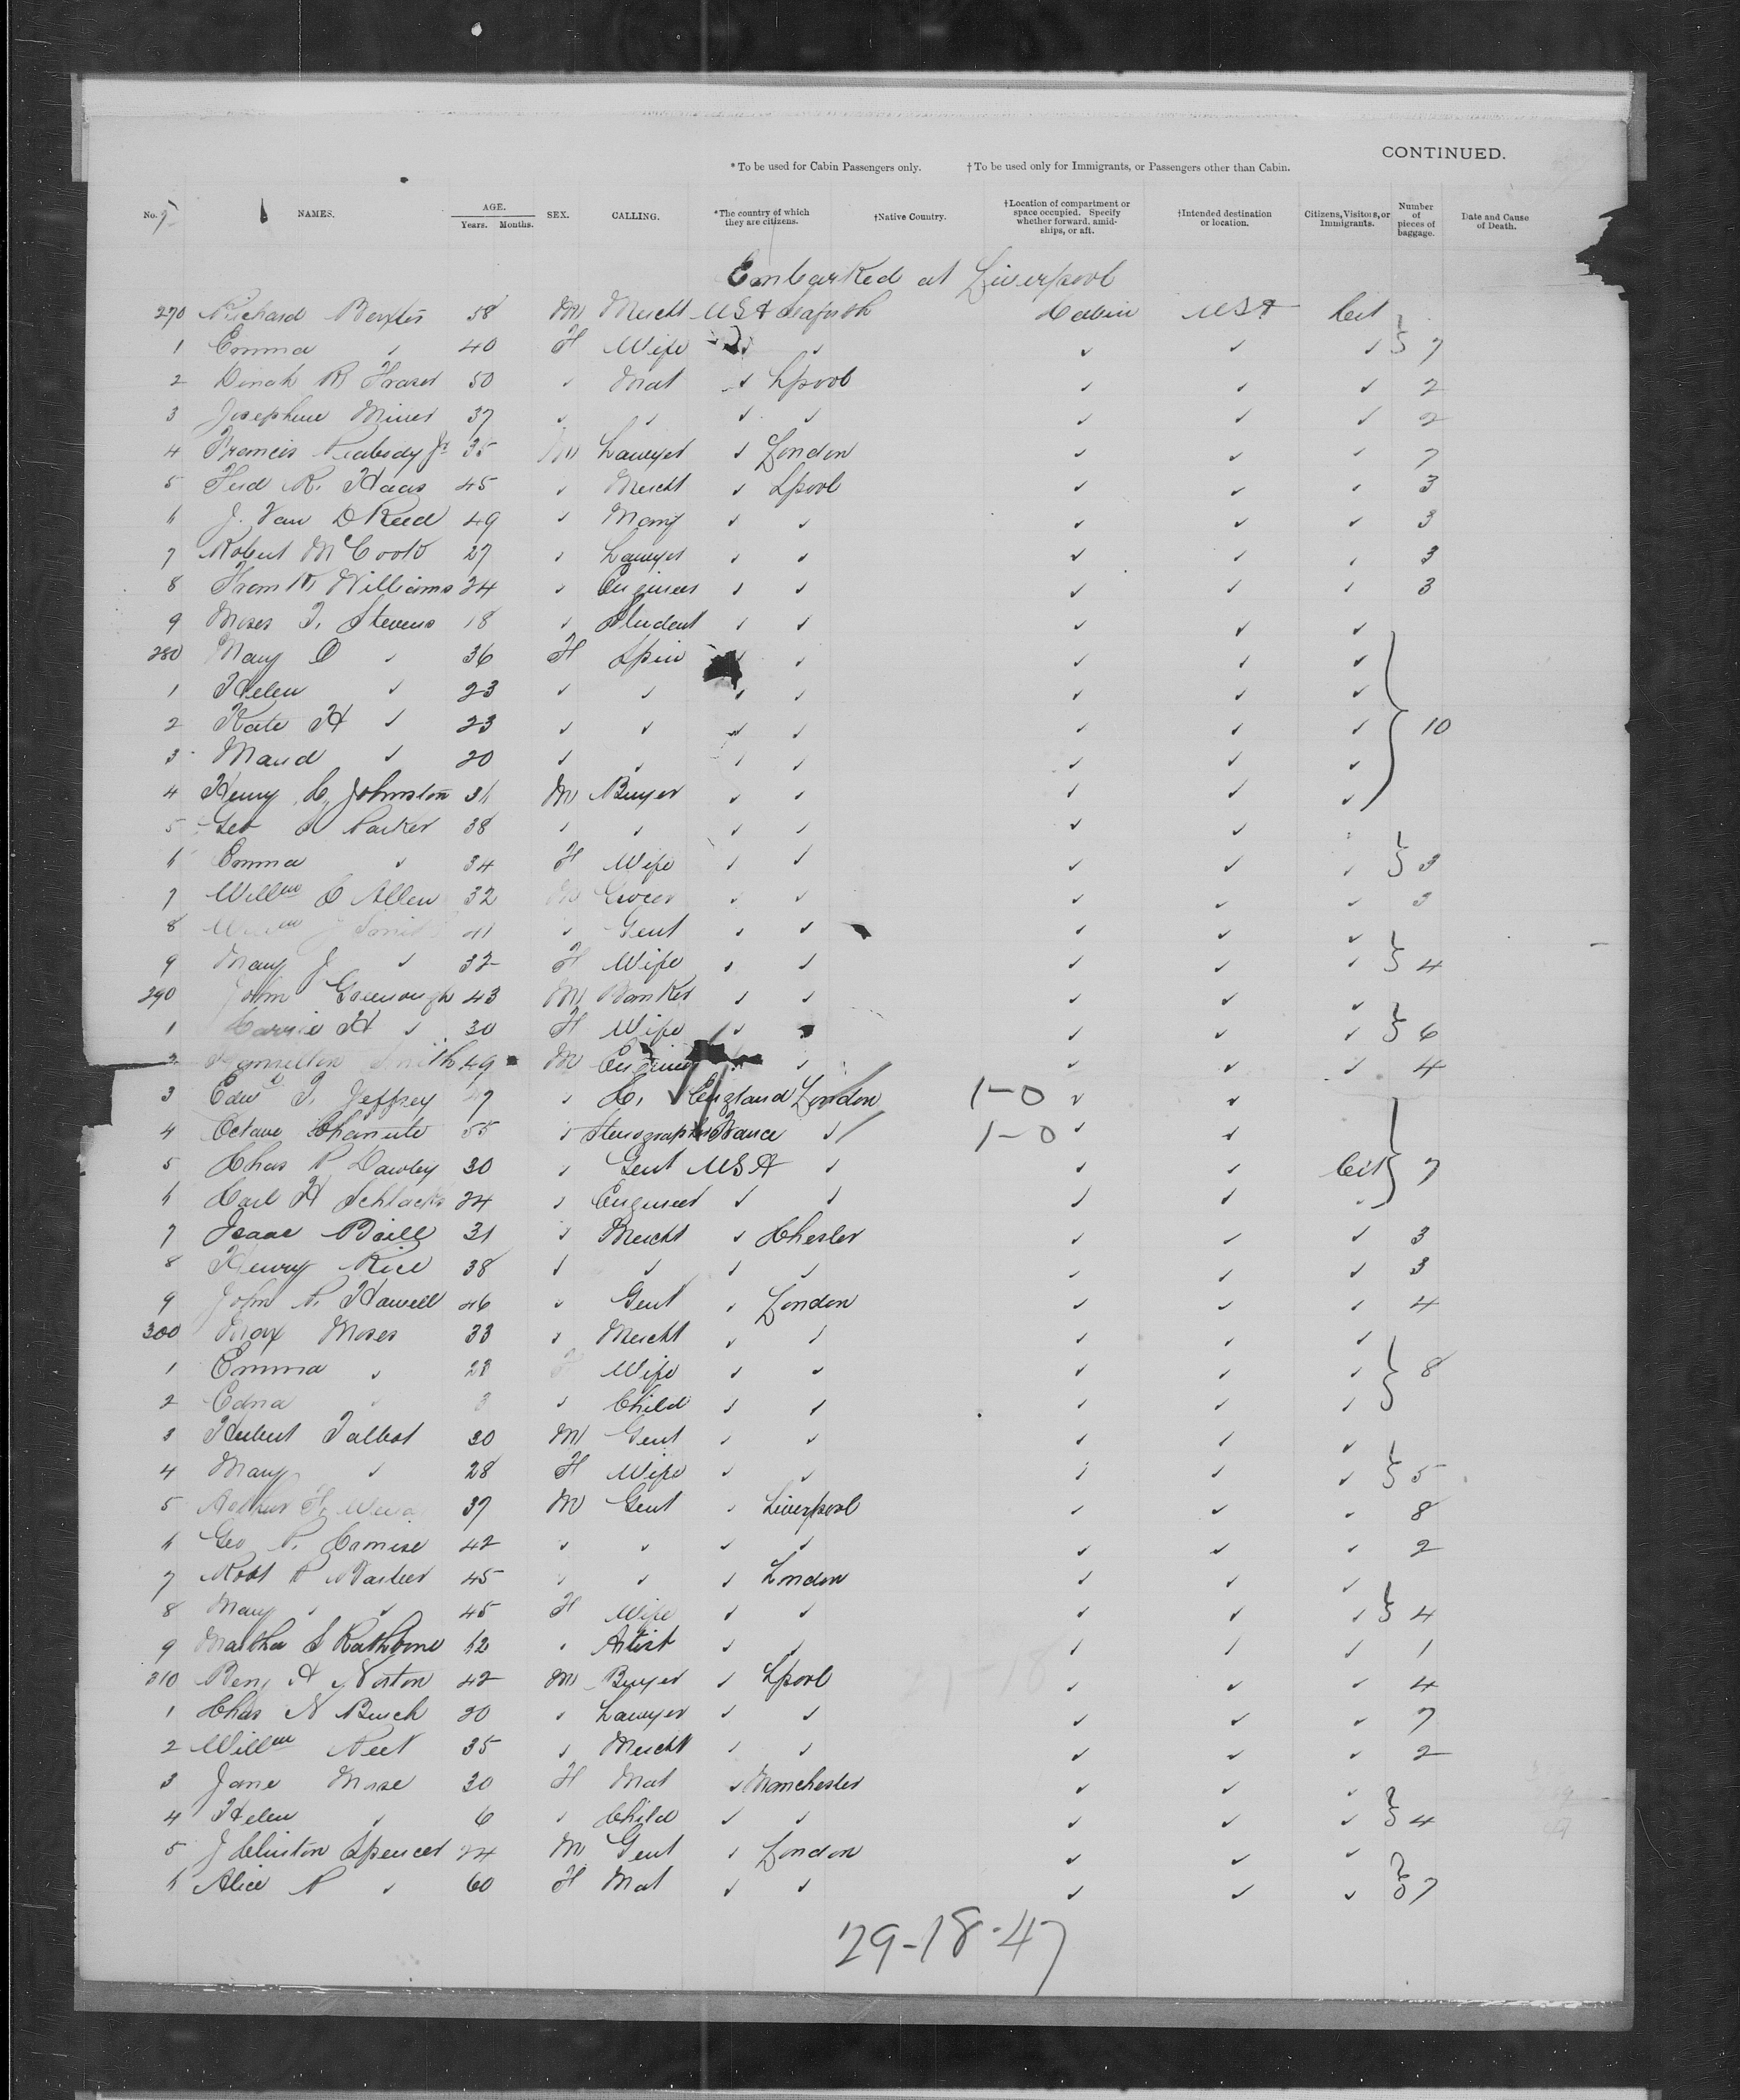 CONTINUED.
* To be used for Cabin Passengers only. † To be used only for Immigrants, or Passengers other than Cabin.
No. NAMES. AGE. Years. Months. SEX. CALLING. *The country of which they are citizens. †Native Country. †Location of compartment or space occupied. Specify whether forward, amidships, or aft. †Intended destination or location. Citizens, Visitors, or Immigrants. Number of pieces of baggage. Date and Cause of Death.
Embarked at Liverpool
270 Richard 58 M Mercht USA Cabin USA Cit
1 Emma ✓ 40 F Wife ✓ ✓ ✓ ✓ ✓ 7
2 Dinah R Fraser 50 ✓ Mat ✓ Lpool ✓ ✓ ✓ 2
3 Josephine Miner 37 ✓ ✓ ✓ ✓ ✓ ✓ ✓ 2
4 Francis Peabody Jr 35 M Lawyer ✓ London ✓ ✓ ✓ 7
5 Ferd R. Haas 45 ✓ Mercht ✓ Lpool ✓ ✓ ✓ 3
6 J. Van D Reed 49 ✓ Manf ✓ ✓ ✓ ✓ ✓ 3
7 Robert McCook 27 ✓ Lawyer ✓ ✓ ✓ ✓ ✓ 3
8 Williams 24 ✓ Engineer ✓ ✓ ✓ ✓ ✓ 3
9 Moses T. Stevens 18 ✓ Student ✓ ✓ ✓ ✓ ✓
280 Mary O ✓ 36 F Spin ✓ ✓ ✓ ✓ ✓
1 Helen ✓ 23 ✓ ✓ ✓ ✓ ✓ ✓ ✓
2 Kate H ✓ 23 ✓ ✓ ✓ ✓ ✓ ✓ ✓ 10
3 Maud ✓ 20 ✓ ✓ ✓ ✓ ✓ ✓ ✓
4 Henry C. Johnston 36 M Buyer ✓ ✓ ✓ ✓ ✓
5 Geo S Parker 38 ✓ ✓ ✓ ✓ ✓ ✓
6 Emma ✓ 34 F Wife ✓ ✓ ✓ ✓ ✓ 3
7 Willm C Allen 32 M Grocer ✓ ✓ ✓ ✓ ✓ 3
8 J Smith 41 ✓ Gent ✓ ✓ ✓ ✓ ✓
9 Mary J ✓ 32 F Wife ✓ ✓ ✓ ✓ ✓ 4
290 John Greenough 43 M Banker ✓ ✓ ✓ ✓ ✓
1 Carrie H ✓ 30 F Wife ✓ ✓ ✓ ✓ 6
2 Hamilton Smith 49 M Engineer ✓ ✓ ✓ ✓ 4
3 Edwd T. Jeffrey 47 ✓ England London 1-0 ✓ ✓
4 Octave Chanute 55 ✓ Stenographer France ✓ 1-0 ✓ ✓
5 Chas P Dawley 30 ✓ Gent USA ✓ ✓ ✓ Cit 7
6 Carl H Schlacks 24 ✓ Engineer ✓ ✓ ✓ ✓ ✓
7 Isaac Baill 31 ✓ Mercht ✓ Chester ✓ ✓ ✓ 3
8 Henry Rice 38 ✓ ✓ ✓ ✓ ✓ ✓ ✓ 3
9 John P. 46 ✓ Gent ✓ London ✓ ✓ ✓ 4
300 Max Moses 33 ✓ Mercht ✓ ✓ ✓ ✓ ✓
1 Emma ✓ 28 F Wife ✓ ✓ ✓ ✓ ✓ 8
2 Edna ✓ 3 ✓ Child ✓ ✓ ✓ ✓ ✓
3 Hubert Talbot 30 M Gent ✓ ✓ ✓ ✓ ✓
4 Mary ✓ 28 F Wife ✓ ✓ ✓ ✓ ✓ 5
5 Arthur 37 M Gent ✓ Liverpool ✓ ✓ ✓ 8
6 Geo P. 42 ✓ ✓ ✓ ✓ ✓ ✓ ✓ 2
7 Robt P 45 ✓ ✓ ✓ London ✓ ✓ ✓
8 Mary ✓ ✓ 45 F Wife ✓ ✓ ✓ ✓ ✓ 4
9 Martha S Rathbone 62 ✓ Artist ✓ ✓ ✓ ✓ ✓ 1
310 Benj A Norton 42 M Buyer ✓ Lpool ✓ ✓ ✓ 4
1 Chas N 30 ✓ Lawyer ✓ ✓ ✓ ✓ ✓ 7
2 Willm 35 ✓ Mercht ✓ ✓ ✓ ✓ ✓ 2
3 Jane Morse 30 F Mat ✓ Manchester ✓ ✓ ✓
4 Helen ✓ 6 ✓ Child ✓ ✓ ✓ ✓ ✓ 4
5 J Clinton Spencer 24 M Gent ✓ London ✓ ✓ ✓
6 Alice P ✓ 60 F Mat ✓ ✓ ✓ ✓ ✓ 7
29-18-47